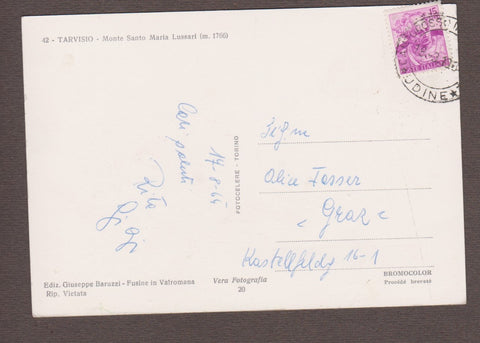 42 - TARVISIO - Monte Santo Maria Lussari (m. 1766)
UDINE
17-8-64
Cari saluti
Rita
FOTOCELERE - TORINO
Alice Fosser
Graz
Kastellfeldg 16-1
Ediz. Giuseppe Baruzzi - Fusine in Valromana
Rip. Vietata
Vera Fotografia
20
BROMOCOLOR
Procédé breveté